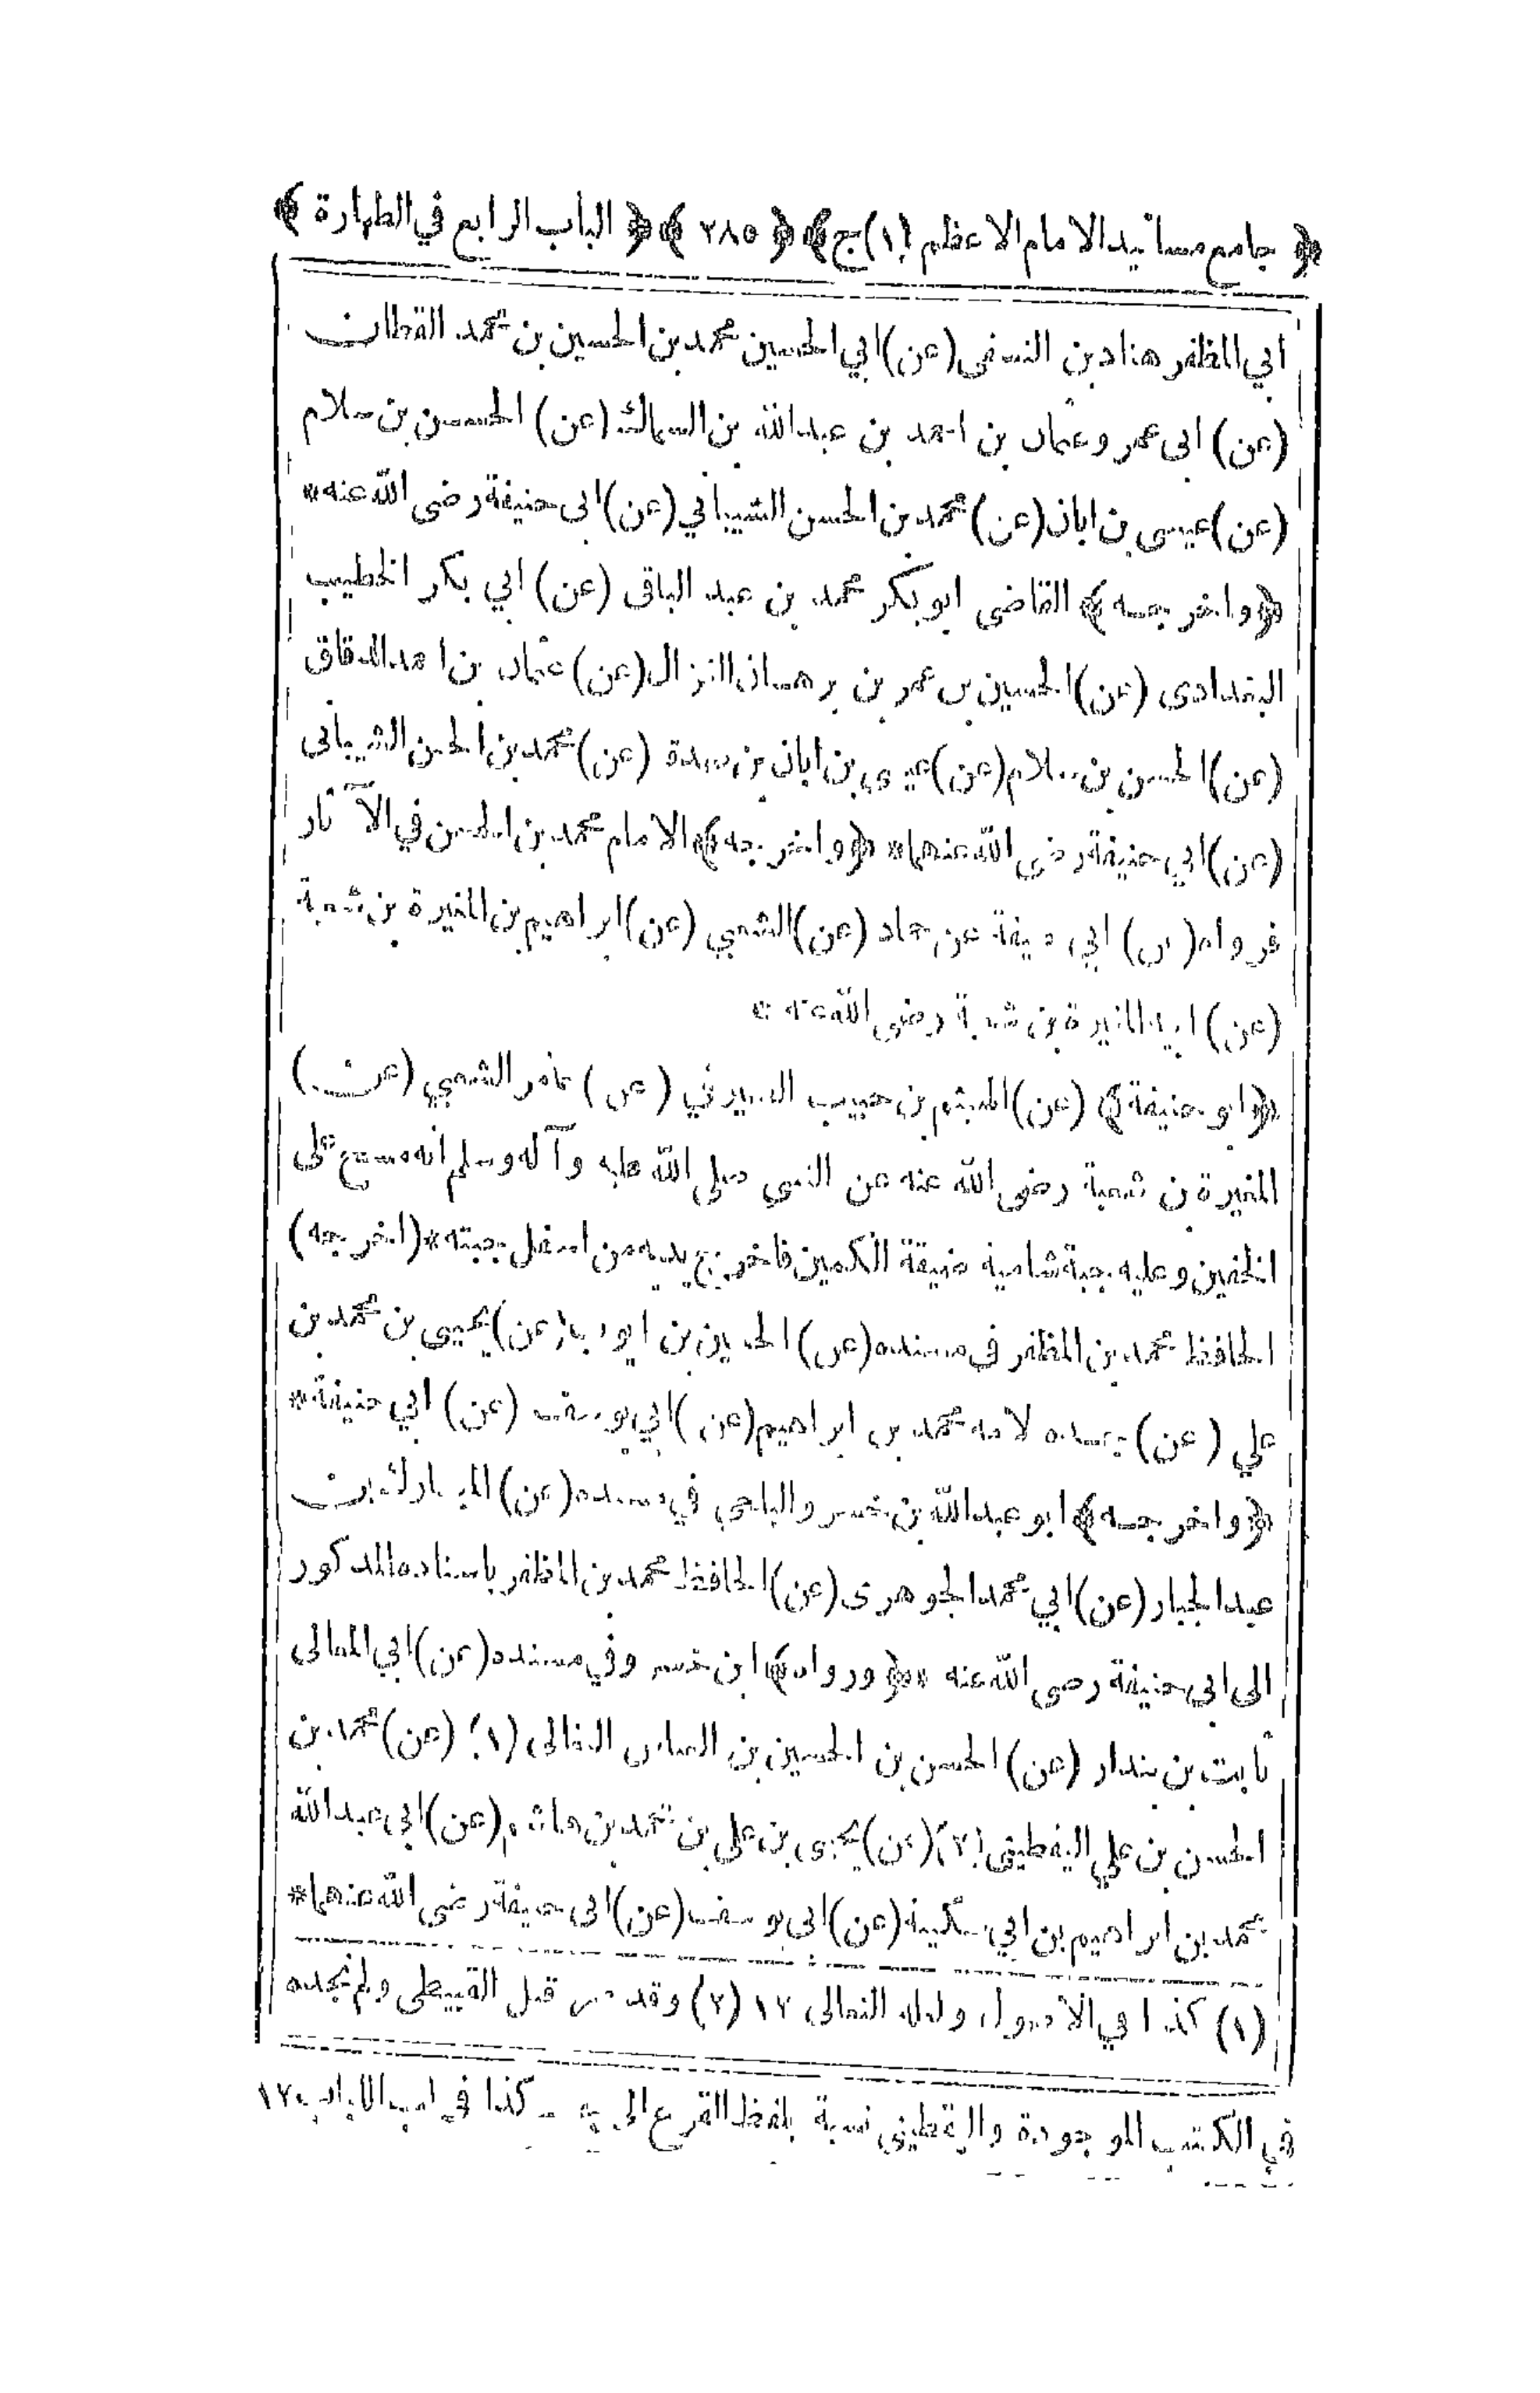 ﴿ جامع مسانيد الامام الاعظم (١) ج ﴾ ﴿ ٢٨٥ ﴾ ﴿ الباب الرابع في الطهارة ﴾
ابي المظفر هناد بن النسفى (عن) ابي الحسين محمد بن الحسين بن محمد القطان
(عن) ابى عمر وعثمان بن احمد بن عبدالله بن السماك (عن) الحسن بن سلام
(عن) عيسى بن ابان (عن) محمد بن الحسن الشيباني (عن) ابى حنيفة رضى الله عنه *
﴿ واخرجه ﴾ القاضى ابو بكر محمد بن عبد الباقى (عن) ابي بكر الخطيب
البغدادى (عن) الحسين بن عمر بن برهان الغزال (عن) عثمان بن احمد الدقاق
(عن) الحسن بن سلام (عن) عيسى بن ابان بن صدقة (عن) محمد بن الحسن الشيبانى
(عن) ابي حنيفة رضى الله عنهما * ﴿ واخرجه ﴾ الامام محمد بن الحسن في الآثار
فرواه (عن) ابي حنيفة عن حماد (عن) الشعبي (عن) ابراهيم بن المغيرة بن شعبة
(عن) ابيه المغيرة بن شعبة رضى الله عنه *
﴿ ابو حنيفة ﴾ (عن) الهيثم بن حبيب الصيرفي (عن) عامر الشعبي (عن)
المغيرة بن شعبة رضى الله عنه عن النبي صلى الله عليه وآله وسلم انه مسح على
الخفين وعليه جبة شامية ضيقة الكمين فاخرج يديه من اسفل جبته * (اخرجه)
الحافظ محمد بن المظفر فى مسنده (عن) الحسين بن (عن) يحيى بن محمد بن
علي (عن) جده لامه محمد بن ابراهيم (عن) ابي يوسف (عن) ابي حنيفة *
﴿ واخرجه ﴾ ابو عبدالله بن خسرو البلخي في مسنده (عن) المبارك بن
عبد الجبار (عن) ابي محمد الجوهرى (عن) الحافظ محمد بن المظفر باسناده المذكور
الى ابى حنيفة رضى الله عنه * ﴿ ورواه ﴾ ابن خسرو في مسنده (عن) ابي المعالى
ثابت بن بندار (عن) الحسن بن الحسين بن العباس النغالى (١) (عن) محمد بن
الحسن بن علي اليقطينى (٢) (عن) يحيى بن على بن محمد بن هاشم (عن) ابى عبدالله
محمد بن ابراهيم بن ابي سكينة (عن) ابى يوسف (عن) ابى حنيفة رضى الله عنهما *
(١) كذا في الاصول ولعله النعالى ١٢ (٢) وقد مر قبل القبيطى ولم نجده
في الكتب الموجودة واليقطينى نسبة بلفظ القرع الى - كذا في لب اللباب ١٢